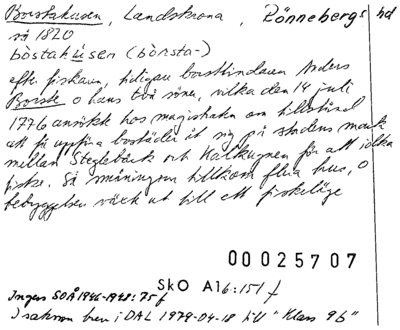 Borstahusen, Landskrona, Rönnebergs hd
så 1820
bòstahu̇sen (bòrsta-)
efter fiskaren, tidigare borstbindaren Anders
Borste o hans två söner, vilka den 14 juli
1776 ansökt hos magistraten om tillstånd
att få uppföra bostäder åt sig på stadens mark
mellan Steglebäck och Kalkugnen för att idka
fiske. Så småningom tillkom flera hus, o
bebyggelsen växte ut till ett fiskeläge
00025707
SkO A16:151 f
Ingers SOÅ 1946-1948:75 f
I saknom brev i DAL 1979-04-18 till "Klass 9b"